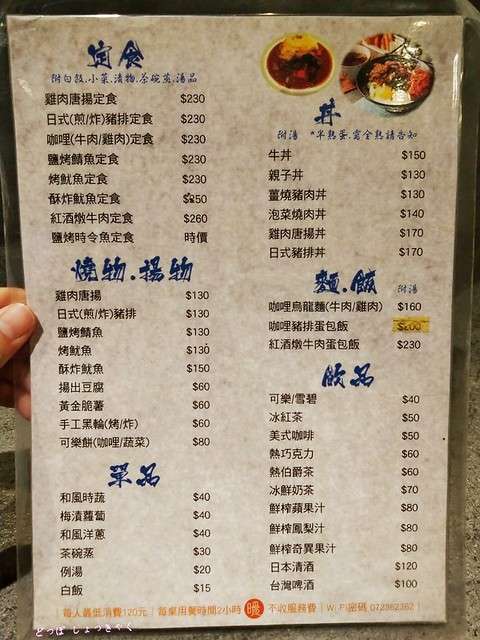 定食
附白飯.小菜.漬物.茶碗蒸.湯品
雞肉唐揚定食 $230
日式(煎/炸)豬排定食 $230
咖哩(牛肉/雞肉)定食 $230
鹽烤鯖魚定食 $230
烤魷魚定食 $230
酥炸魷魚定食 $250
紅酒燉牛肉定食 $260
鹽烤時令魚定食 時價
燒物.揚物
雞肉唐揚 $130
日式(煎/炸)豬排 $130
鹽烤鯖魚 $130
烤魷魚 $130
酥炸魷魚 $150
揚出豆腐 $60
黃金脆薯 $60
手工黑輪(烤/炸) $60
可樂餅(咖哩/蔬菜) $80
單品
和風時蔬 $40
梅漬蘿蔔 $40
和風洋蔥 $40
茶碗蒸 $30
例湯 $20
白飯 $15
丼
附湯 *半熟蛋.需全熟請告知
牛丼 $150
親子丼 $130
薑燒豬肉丼 $130
泡菜燒肉丼 $140
雞肉唐揚丼 $170
日式豬排丼 $170
麵.飯 附湯
咖哩烏龍麵(牛肉/雞肉) $160
咖哩豬排蛋包飯 $200
紅酒燉牛肉蛋包飯 $230
飲品
可樂/雪碧 $40
冰紅茶 $50
美式咖啡 $50
熱巧克力 $60
熱伯爵茶 $60
冰鮮奶茶 $70
鮮榨蘋果汁 $80
鮮榨鳳梨汁 $80
鮮榨奇異果汁 $80
日本清酒 $120
台灣啤酒 $100
|每人最低消費120元|每桌用餐時間2小時 不收服務費|Wi Fi密碼 072862362|
どっぽ しょっきゃく